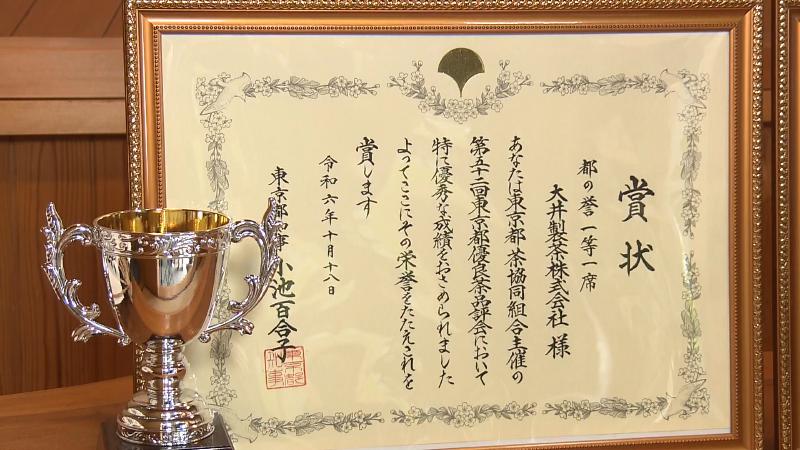 賞状
都の誉一等一席
大井製茶株式会社 様
あなたは東京都茶協同組合主催の
第五十二回東京都優良茶品評会において
特に優秀な成績をおさめられました
よってここにその栄誉をたたえこれを
賞します
令和六年十月十八日
東京都知事 小池百合子